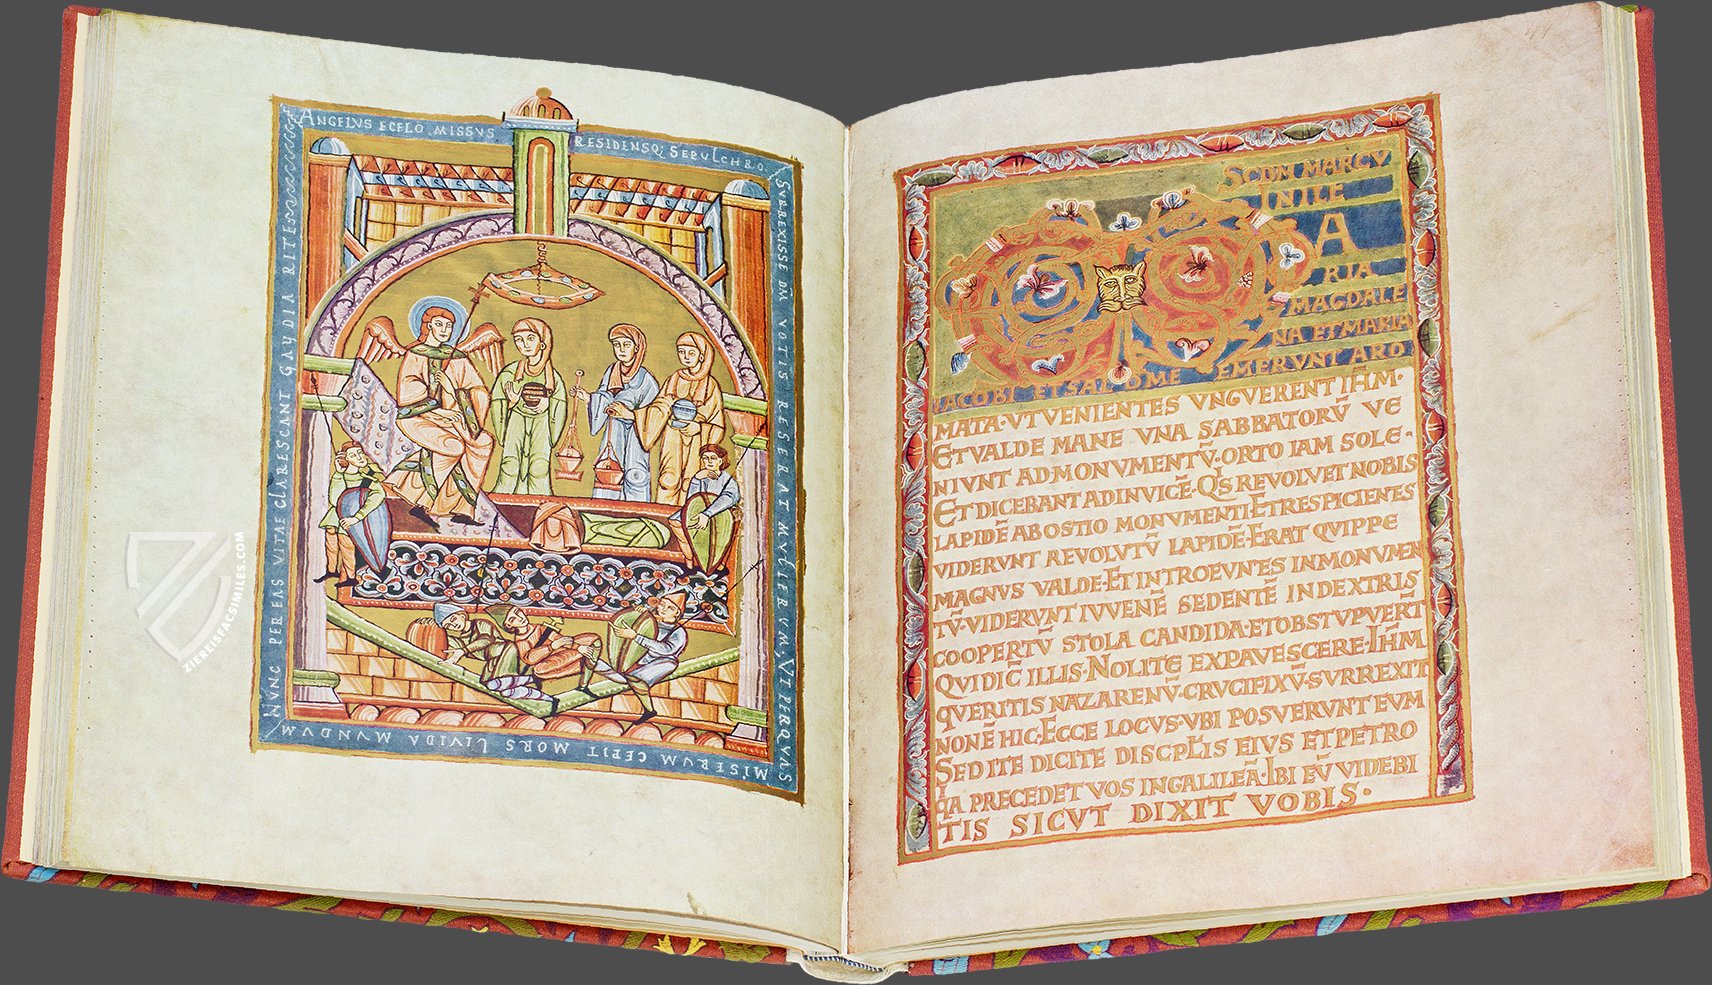 ANGELVS E CELO MISSVS
RESIDENSQ; SEPVLCHRO
SVRREXISSE DM VOTIS RESERAT MVLIERVM, VT PER QVAS
MISERVM CEPIT MORS LIVIDA MVNDVM
NVNC PER EAS VITAE CLARESCANT GAVDIA RITE
ZIEREISFACSIMILES.COM
SCDM MARCV
IN ILE
A
RIA
MAGDALE
NA ET MARIA
IACOBI ET SALOME EMERVNT ARO
MATA·VT VENIENTES VNGVERENT IHM·
ET VALDE MANE VNA SABBATORV̄ VE
NIVNT AD MONVMENTV̄·ORTO IAM SOLE·
ET DICEBANT AD INVICĒ·QIS REVOLVET NOBIS
LAPIDĒ AB OSTIO MONVMENTI·ET RESPICIENTES
VIDERVNT REVOLVTV̄ LAPIDĒ·ERAT QVIPPE
MAGNVS VALDE·ET INTROEVNTES IN MONVMEN
TV̄·VIDERVNT IVVENĒ SEDENTĒ IN DEXTRIS
COOPERTV̄ STOLA CANDIDA·ET OBSTVPVERT̄
QVI DIC̄ ILLIS·NOLITE EXPAVESCERE·IHM
QVERITIS NAZARENV̄·CRVCIFIXV̄·SVRREXIT
NON Ē HIC·ECCE LOCVS·VBI POSVERVNT EVM
SED ITE DICITE DISCPLIS EIVS ET PETRO
QA PRECEDET VOS IN GALILEĀ·IBI EV̄ VIDEBI
TIS SICVT DIXIT VOBIS·